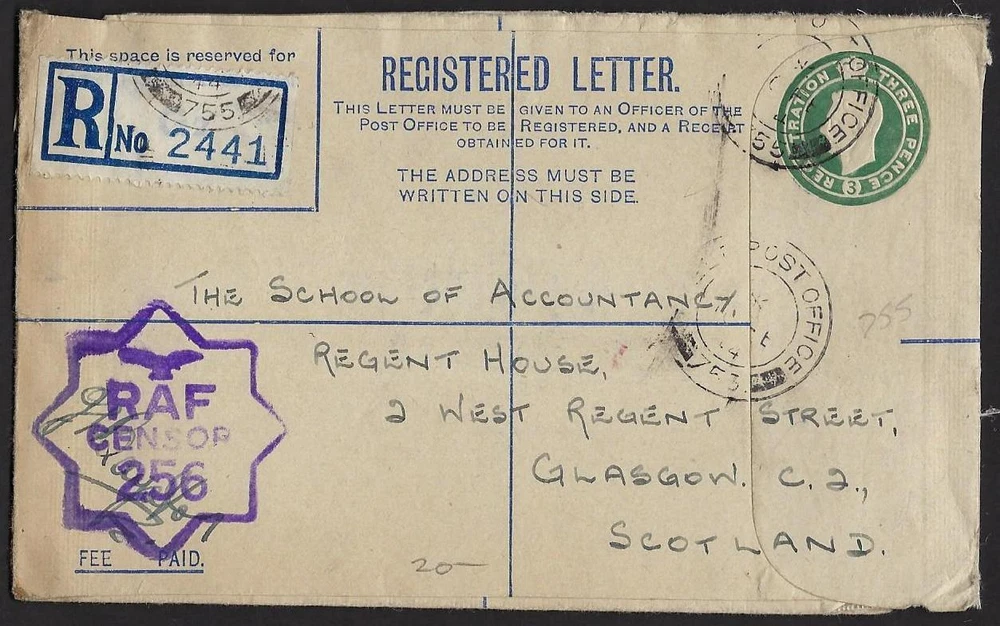 This space is reserved for
R No 2441
14
755
REGISTERED LETTER.
THIS LETTER MUST BE GIVEN TO AN OFFICER OF THE
POST OFFICE TO BE REGISTERED, AND A RECEIPT
OBTAINED FOR IT.
THE ADDRESS MUST BE
WRITTEN ON THIS SIDE.
REGISTRATION THREE PENCE
3
FICE
55
POST OFFICE
753
755
THE SCHOOL OF ACCOUNTANCY,
REGENT HOUSE,
2 WEST REGENT STREET,
GLASGOW. C.2.,
SCOTLAND.
RAF
CENSOR
256
FEE PAID.
20-